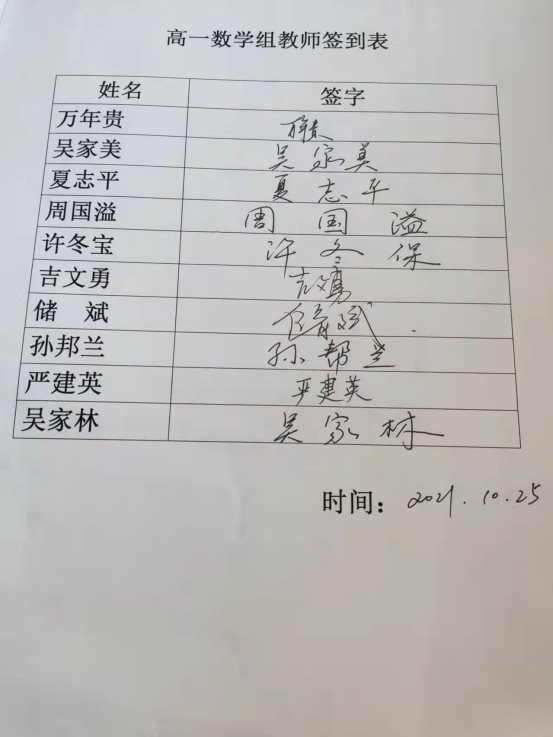 高一数学组教师签到表
姓名 签字
万年贵
吴家美 吴家美
夏志平 夏志平
周国溢 周国溢
许冬宝 许冬保
吉文勇 吉文勇
储 斌 储斌
孙邦兰 孙帮兰
严建英 严建英
吴家林 吴家林
时间：2021.10.25